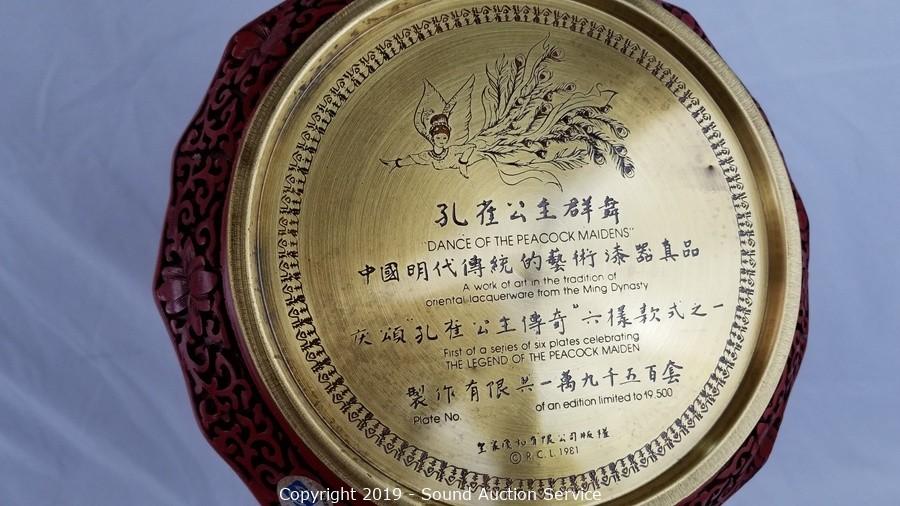 孔雀公主群舞
"DANCE OF THE PEACOCK MAIDENS"
中國明代傳統的藝術漆器真品
A work of art in the tradition of
oriental lacquerware from the Ming Dynasty
慶頌"孔雀公主傳奇"六樣款式之一
First of a series of six plates celebrating
THE LEGEND OF THE PEACOCK MAIDEN
製作有限共一萬九千五百套
Plate No. of an edition limited to 19.500
有限公司版權
© R.C.L. 1981
Copyright 2019 - Sound Auction Service